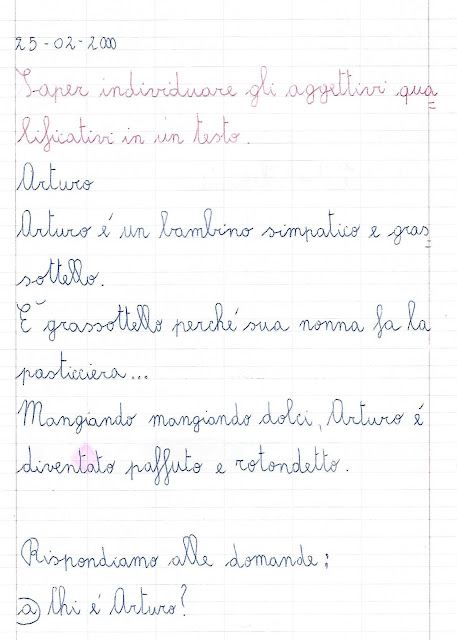 25-02-2000
Saper individuare gli aggettivi qua_
lificativi in un testo.
Arturo
Arturo é un bambino simpatico e gras_
sottello.
É grassottello perché sua nonna fa la
pasticciera...
Mangiando mangiando dolci, Arturo é
diventato paffuto e rotondetto.
Rispondiamo alle domande:
a) Chi é Arturo?